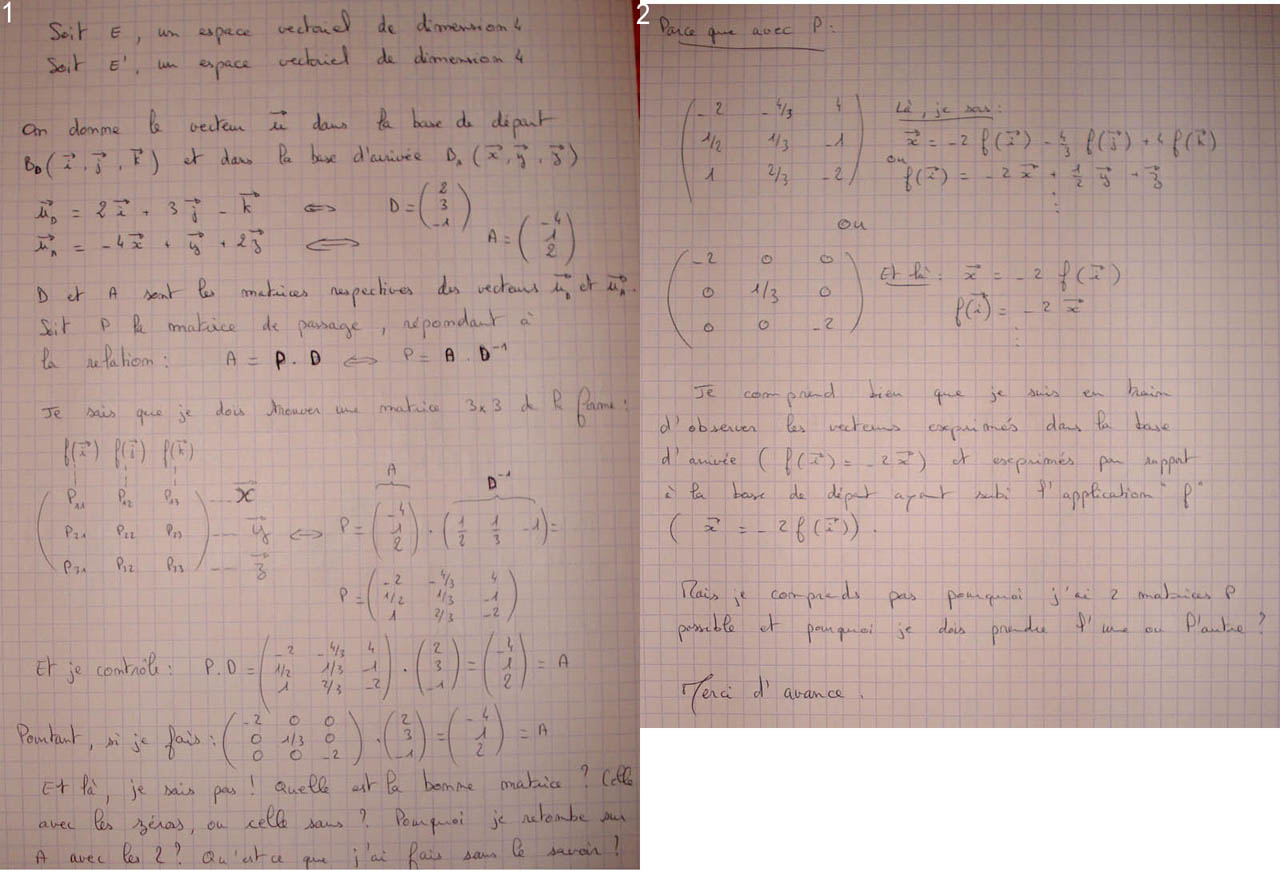 1
Soit E, un espace vectoriel de dimension 4
Soit E', un espace vectoriel de dimension 4
On donne le vecteur u⃗ dans la base de départ
B_D (i⃗, j⃗, k⃗) et dans la base d'arrivée B_A (x⃗, y⃗, z⃗)
u⃗_D = 2 i⃗ + 3 j⃗ - k⃗ ⟺ D = (2 3 -1)
u⃗_A = -4 x⃗ + y⃗ + 2 z⃗ ⟺ A = (-4 1 2)
D et A sont les matrices respectives des vecteurs u⃗_D et u⃗_A.
Soit P la matrice de passage, répondant à
la relation : A = P . D ⟺ P = A . D⁻¹
Je sais que je dois trouver une matrice 3x3 de la forme :
f(i⃗) f(j⃗) f(k⃗)
P₁₁ P₁₂ P₁₃ --- x⃗
P₂₁ P₂₂ P₂₃ --- y⃗
P₃₁ P₃₂ P₃₃ --- z⃗
⟺ P = (-4 1 2) . (1/2 1/3 -1) =
A D⁻¹
P = (-2 -4/3 4
1/2 1/3 -1
1 2/3 -2)
Et je contrôle : P.D = (-2 -4/3 4
1/2 1/3 -1
1 2/3 -2) . (2 3 -1) = (-4 1 2) = A
Pourtant, si je fais : (-2 0 0
0 1/3 0
0 0 -2) . (2 3 -1) = (-4 1 2) = A
Et là, je sais pas ! Quelle est la bonne matrice ? Celle
avec les zéros, ou celle sans ? Pourquoi je retombe sur
A avec les 2 ? Qu'est ce que j'ai fais sans le savoir ?
2
Parce que avec P :
(-2 -4/3 4
1/2 1/3 -1
1 2/3 -2)
Là, je sais :
x⃗ = -2 f(i⃗) - 4/3 f(j⃗) + 4 f(k⃗)
ou
f(i⃗) = -2 x⃗ + 1/2 y⃗ + z⃗
⋮
ou
(-2 0 0
0 1/3 0
0 0 -2)
Et là : x⃗ = -2 f(i⃗)
f(i⃗) = -2 x⃗
⋮
Je comprend bien que je suis en train
d'observer les vecteurs exprimés dans la base
d'arrivée ( f(i⃗) = -2 x⃗ ) et exprimés par rapport
à la base de départ ayant subi l'application "f"
( x⃗ = -2 f(i⃗) ).
Mais je comprends pas pourquoi j'ai 2 matrices P
possible et pourquoi je dois prendre l'une ou l'autre ?
Merci d'avance.